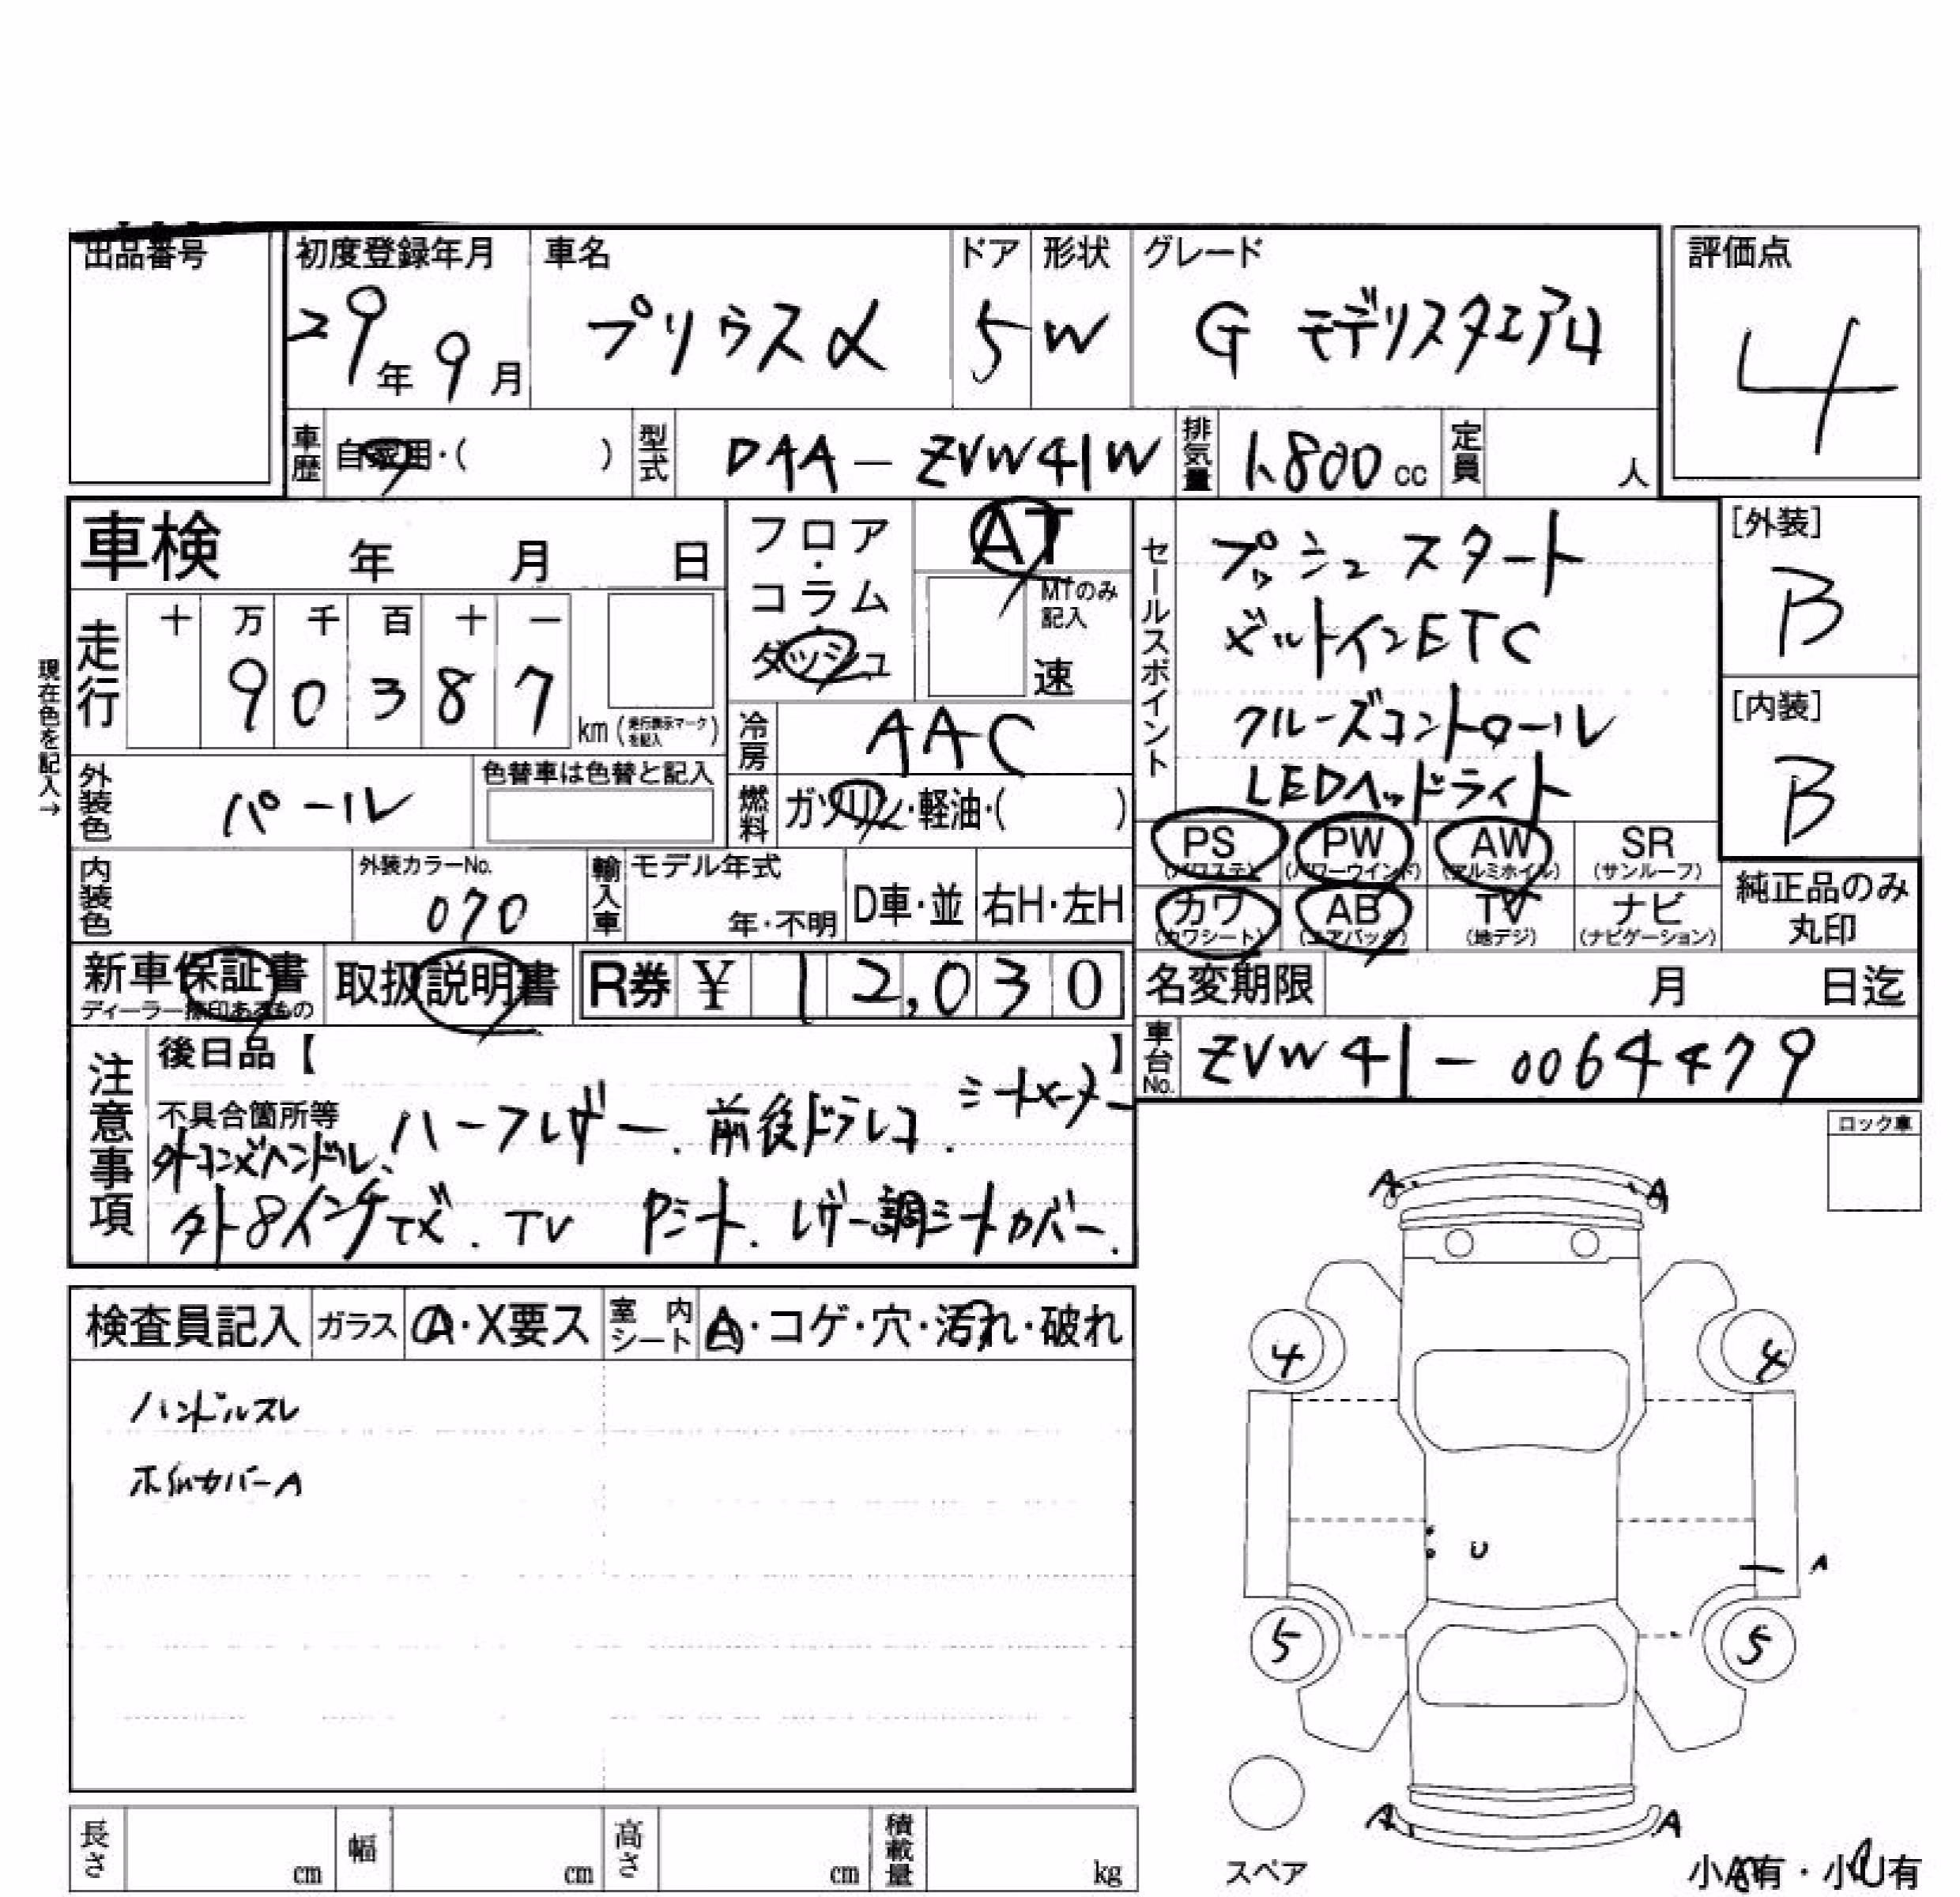 出品番号
初度登録年月
29年 9月
車名
プリウスα
ドア
5
形状
W
グレード
G モデリスタエアロ
評価点
4
車歴
自家用・( )
型式
DAA-ZVW41W
排気量
1,800cc
定員
人
車検 年 月 日
現在色を記入→
走行
十 万 千 百 十 一
9 0 3 8 7
km(走行表示マークを記入)
外装色
パール
色替車は色替と記入
内装色
外装カラーNo.
070
フロア・コラム・ダッシュ
AT
MTのみ記入
速
冷房
AAC
燃料
ガソリン・軽油・( )
輸入車
モデル年式
年・不明
D車・並
右H・左H
セールスポイント
プッシュスタート
ビルトインETC
クルーズコントロール
LEDヘッドライト
PS
(パワステ)
PW
(パワーウインド)
AW
(アルミホイル)
SR
(サンルーフ)
カワ
(カワシート)
AB
(エアバッグ)
TV
(地デジ)
ナビ
(ナビゲーション)
[外装]
B
[内装]
B
純正品のみ丸印
新車保証書
ディーラー捺印あるもの
取扱説明書
R券 ¥ 12,030
名変期限 月 日迄
車台No.
ZVW41-0064479
注意事項
後日品【 】
不具合箇所等
ハーフレザー、前後ドラレコ、シートヒーター
外コンビハンドル、
外8インチナビ、TV Pシート、レザー調シートカバー、
ロック車
検査員記入
ガラス
A・X要ス
室内シート
A・コゲ・穴・汚れ・破れ
ハンドルスレ
A A
4 4
U
A
5 5
A A
スペア
小A有・小U有
長さ cm
幅 cm
高さ cm
積載量 kg